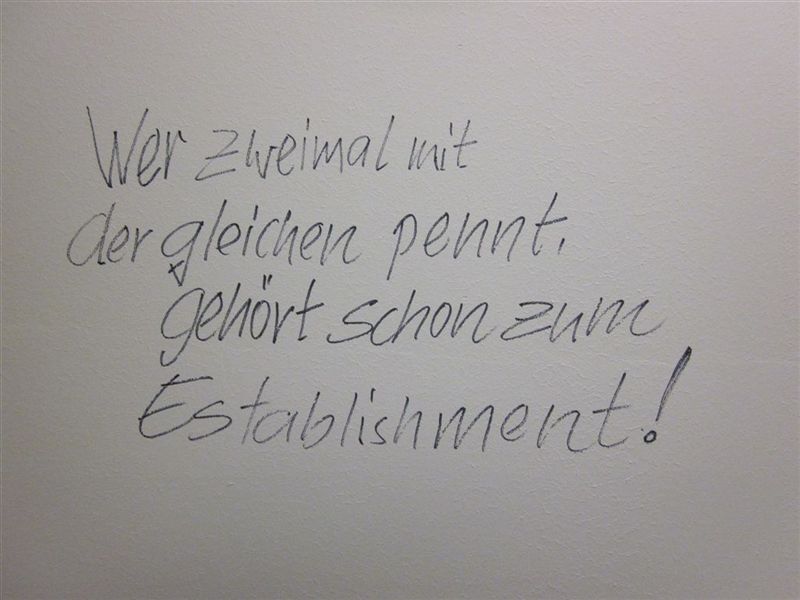 Wer zweimal mit
der gleichen pennt,
gehört schon zum
Establishment!